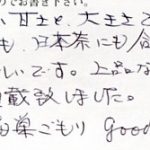 のでお書き下さい。
い甘さと、大きさで
も、日本茶にも合
いしいです。上品な
載致しました。
巣ごもり good